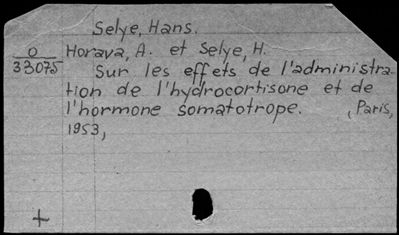 Selye, Hans.
O
33075
Horava, A. et Selye, H.
Sur les effets de l'administra-
tion de l'hydrocortisone et de
l'hormone somatotrope. , Paris,
1953,
+